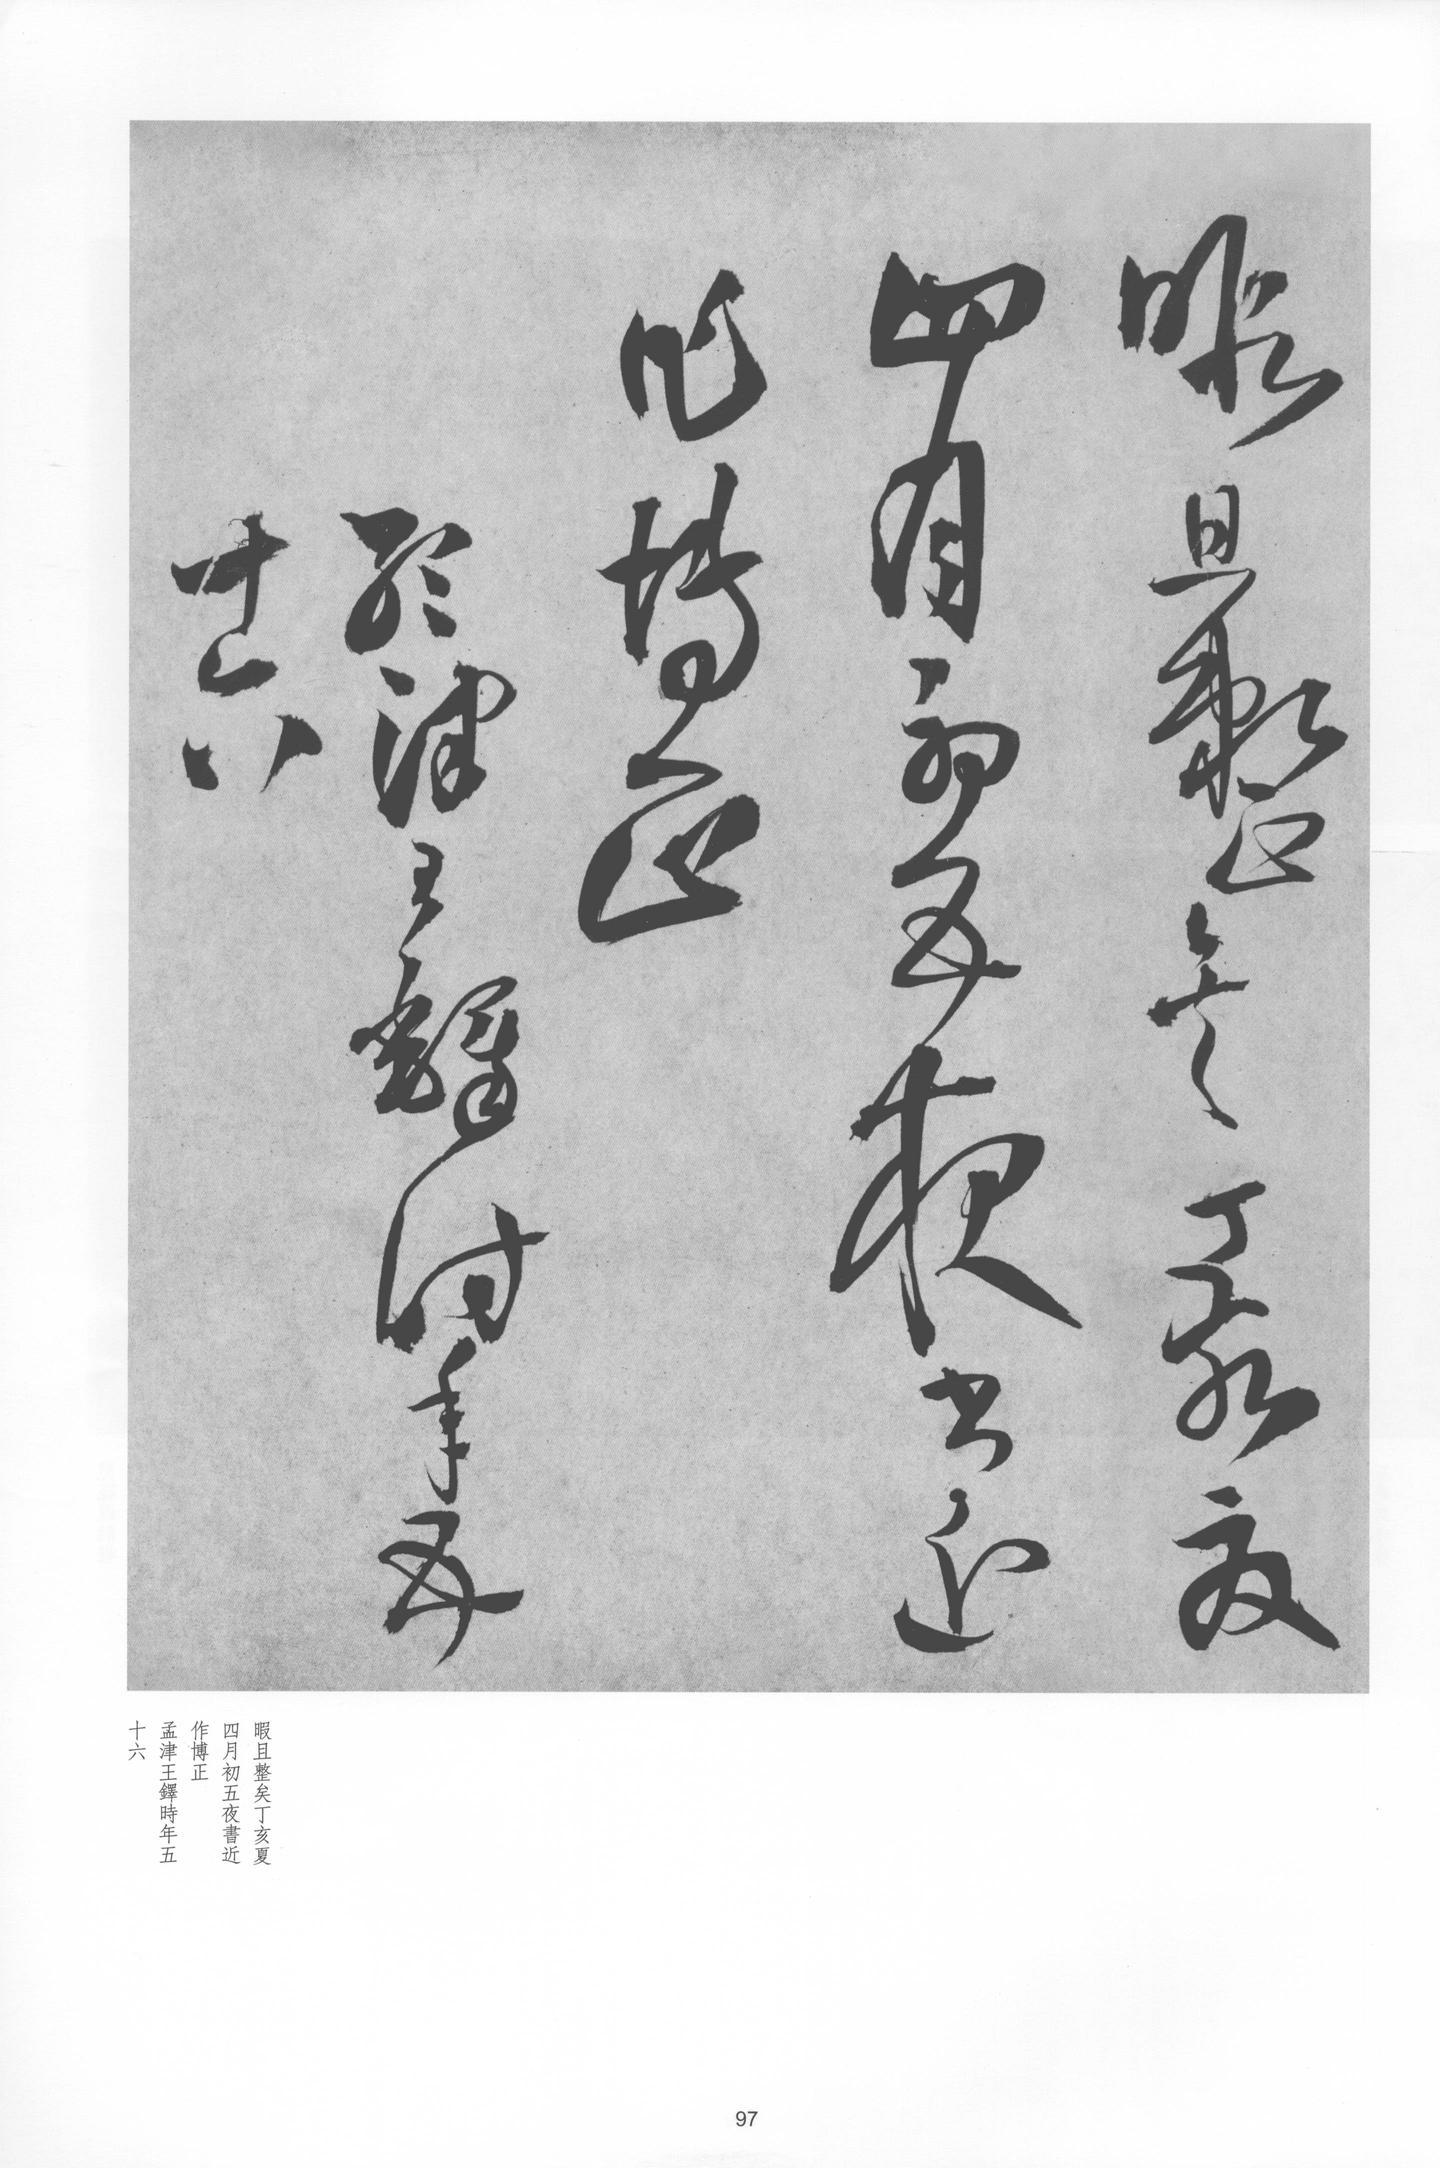 暇且整矣丁亥夏
四月初五夜書近
作博正
孟津王鐸時年五
十六
暇且整矣丁亥夏
四月初五夜書近
作博正
孟津王鐸時年五
十六
97